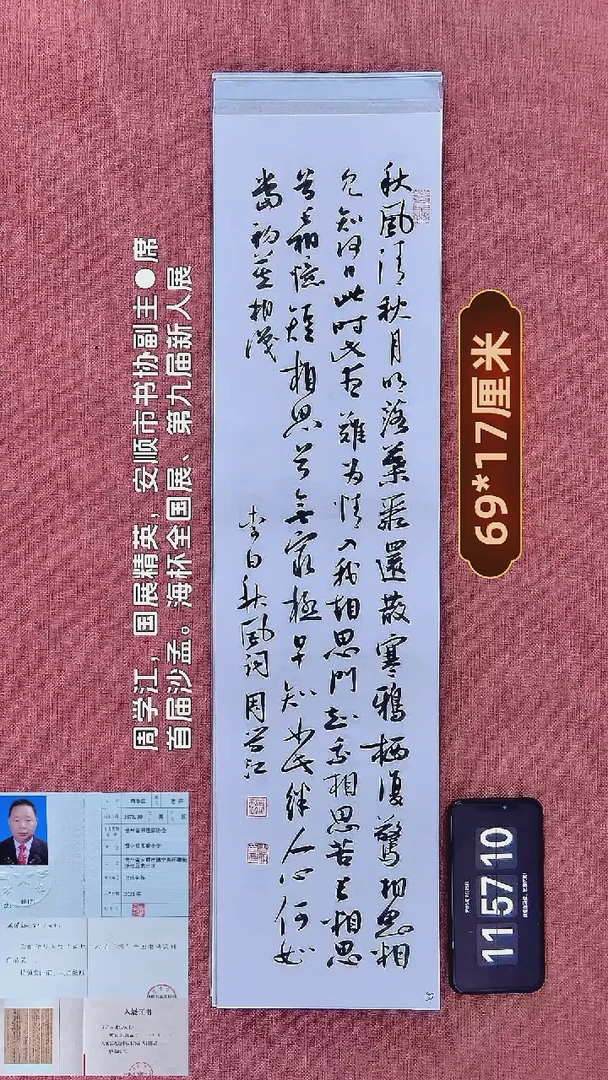 秋風清秋月明落葉聚還散寒鴉栖復驚相思相
見知何日此時此夜難为情入我相思門知我相思苦長相思
兮長相憶短相思兮無窮極早知如此絆人心何如
當初莫相識
李白秋風詞周学江
周学江，国展精英，安顺市书协副主●席
首届沙孟。海杯全国展、第九届新人展
69*17厘米
11 57 10
入展证书